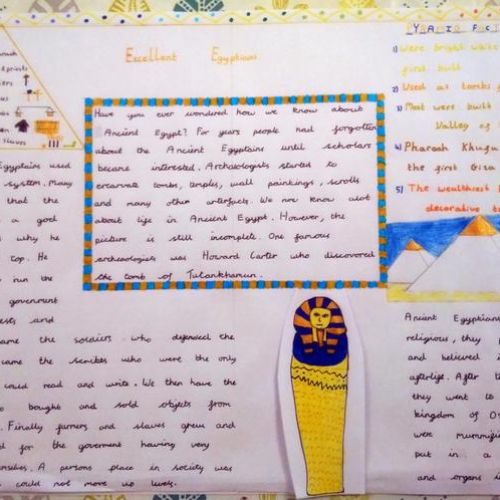 Excellent Egyptians
Have you ever wondered how we know about
Ancient Egypt? For years people had forgotten
about the Ancient Egyptains until scholars
became interested. Archaeologists started to
excavate tombs, temples, wall paintings, scrolls
and many other artefacts. We now know alot
about life in Ancient Egypt. However, the
picture is still incomplete. One famous
archaeologists was Howard Carter who discovered
the tomb of Tutankhamun.
slaves
Egyptains used
system. Many
that the
a god
why he
top. He
run the
goverment
and
ame the soldiers who defended the
came the scribes who were the only
could read and write. We then have the
bought and sold objects from
Finally farmers and slaves grew and
for the goverment having very
mselves. A persons place in society was
could not move up lives.
1) Were bright white
first built
2) Used as tombs f
3) Most were built
Valley of
4) Pharoah Khufu
the first Giza
5) The wealthiest
decorative to
Ancient Egyptians
religious, they
and believed
afterlife. After
they went to
kingdom of O
were mummifi
put in a
and organs